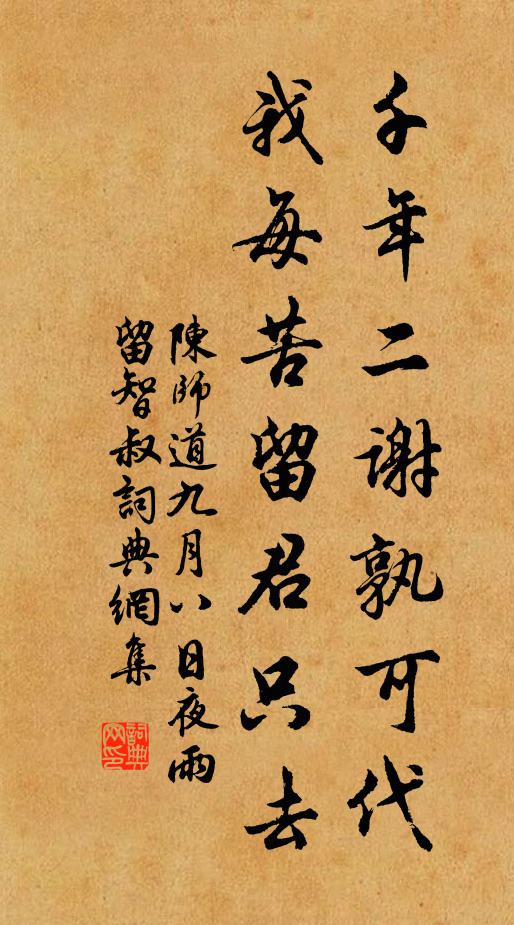 千年二谢孰可代
我每苦留君只去
陳師道九月八日夜雨
留智叔詞典網集
詞典网印